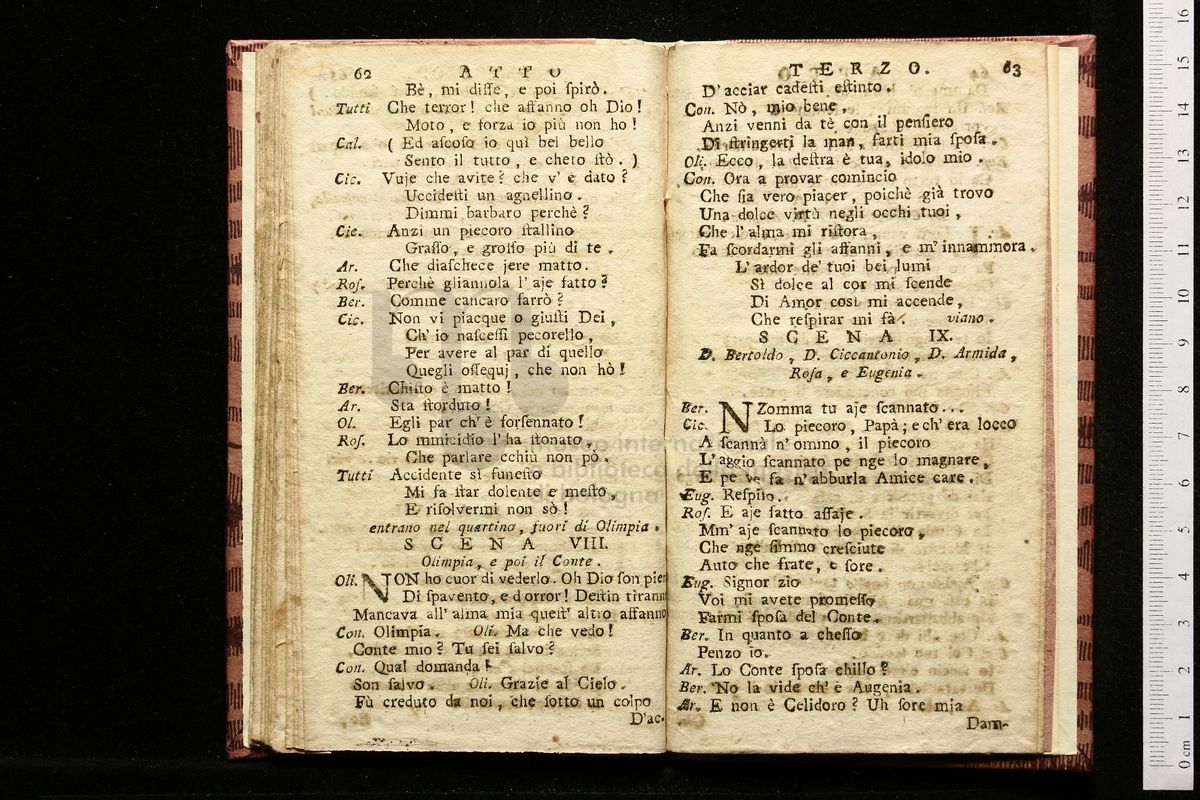 62 ATTO
Bè, mi disse, e poi spirò.
Tutti Che terror! che affanno oh Dio!
Moto, e forza io più non ho!
Cal. ( Ed ascoso io quì bel bello
Sento il tutto, e cheto stò. )
Cic. Vuje che avite? che v' è dato?
Uccidesti un agnellino.
Dimmi barbaro perchè?
Cic. Anzi un piecoro stallino
Grasso, e grosso più di te.
Ar. Che diaschece jere matto.
Ros. Perchè gliannola l' aje fatto?
Ber. Comme cancaro farrò?
Cic. Non vi piacque o giusti Dei,
Ch' io nascessi pecorello,
Per avere al par di quello
Quegli ossequj, che non hò!
Ber. Chisto è matto!
Ar. Sta storduto!
Ol. Egli par ch' è forsennato!
Ros. Lo mmicidio l' ha stonato,
Che parlare cchiù non pò.
Tutti Accidente sì funesto
Mi fa star dolente e mesto,
E risolvermi non sò!
entrano nel quartino, fuori di Olimpia.
SCENA VIII.
Olimpia, e poi il Conte.
Oli. NON ho cuor di vederlo. Oh Dio son pien
Di spavento, e d orror! Destin tiranno
Mancava all' alma mia quest' altro affanno
Con. Olimpia. Oli. Ma che vedo!
Conte mio? Tu sei salvo?
Con. Qual domanda!
Son salvo. Oli. Grazie al Cielo.
Fù creduto da noi, che sotto un colpo
D'ac-
TERZO. 63
D' acciar cadesti estinto.
Con. Nò, mio bene,
Anzi venni da tè con il pensiero
Di stringerti la man, farti mia sposa.
Oli. Ecco, la destra è tua, idolo mio.
Con. Ora a provar comincio
Che sia vero piacer, poichè già trovo
Una dolce virtù negli occhi tuoi,
Che l' alma mi ristora,
Fa scordarmi gli affanni, e m' innammora.
L' ardor de' tuoi bei lumi
Sì dolce al cor mi scende
Di Amor così mi accende,
Che respirar mi fà. viano.
SCENA IX.
D. Bertoldo, D. Ciccantonio, D. Armida,
Rosa, e Eugenia.
Ber. NZomma tu aje scannato...
Cic. Lo piecoro, Papà; e ch' era locco
A scannà n' ommo, il piecoro
L' aggio scannato pe nge lo magnare,
E pe ve fa n' abburla Amice care.
Eug. Respiro.
Ros. E aje fatto assaje.
Mm' aje scannato lo piecoro,
Che nge simmo cresciute
Auto che frate, e sore.
Eug. Signor zio
Voi mi avete promesso
Farmi sposa del Conte.
Ber. In quanto a chesso
Penzo io.
Ar. Lo Conte sposa chillo?
Ber. No la vide ch' è Augenia.
Ar. E non è Celidoro? Uh sore mia
Dam-